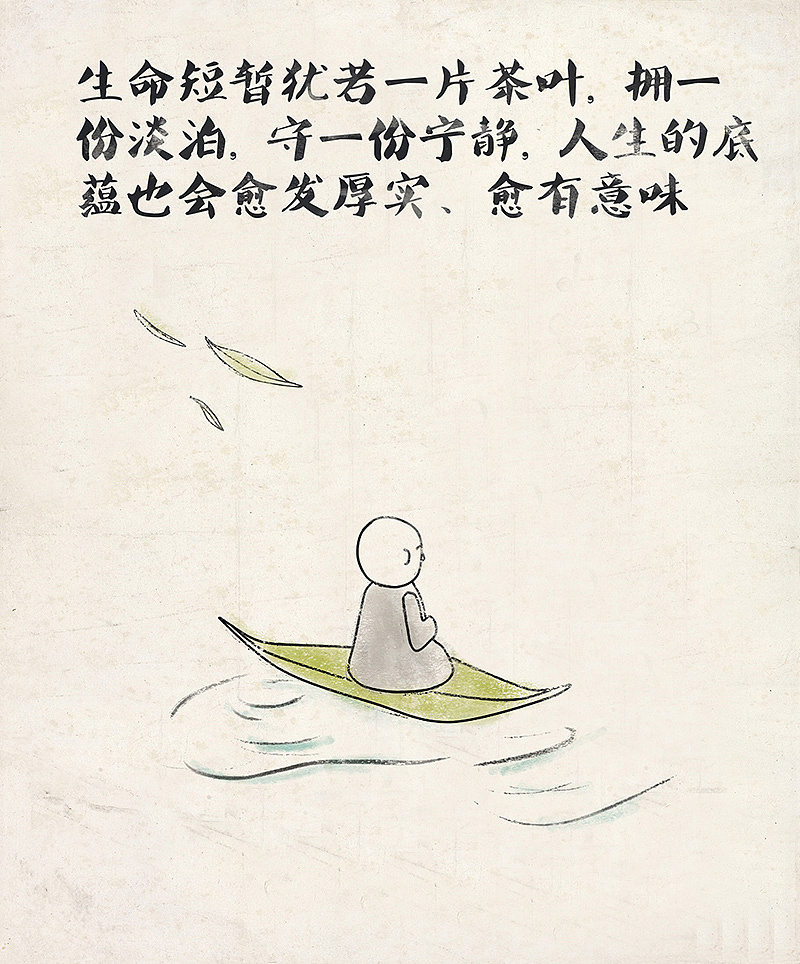 生命短暂犹若一片茶叶,拥一
份淡泊,守一份宁静,人生的底
蕴也会愈发厚实、愈有意味